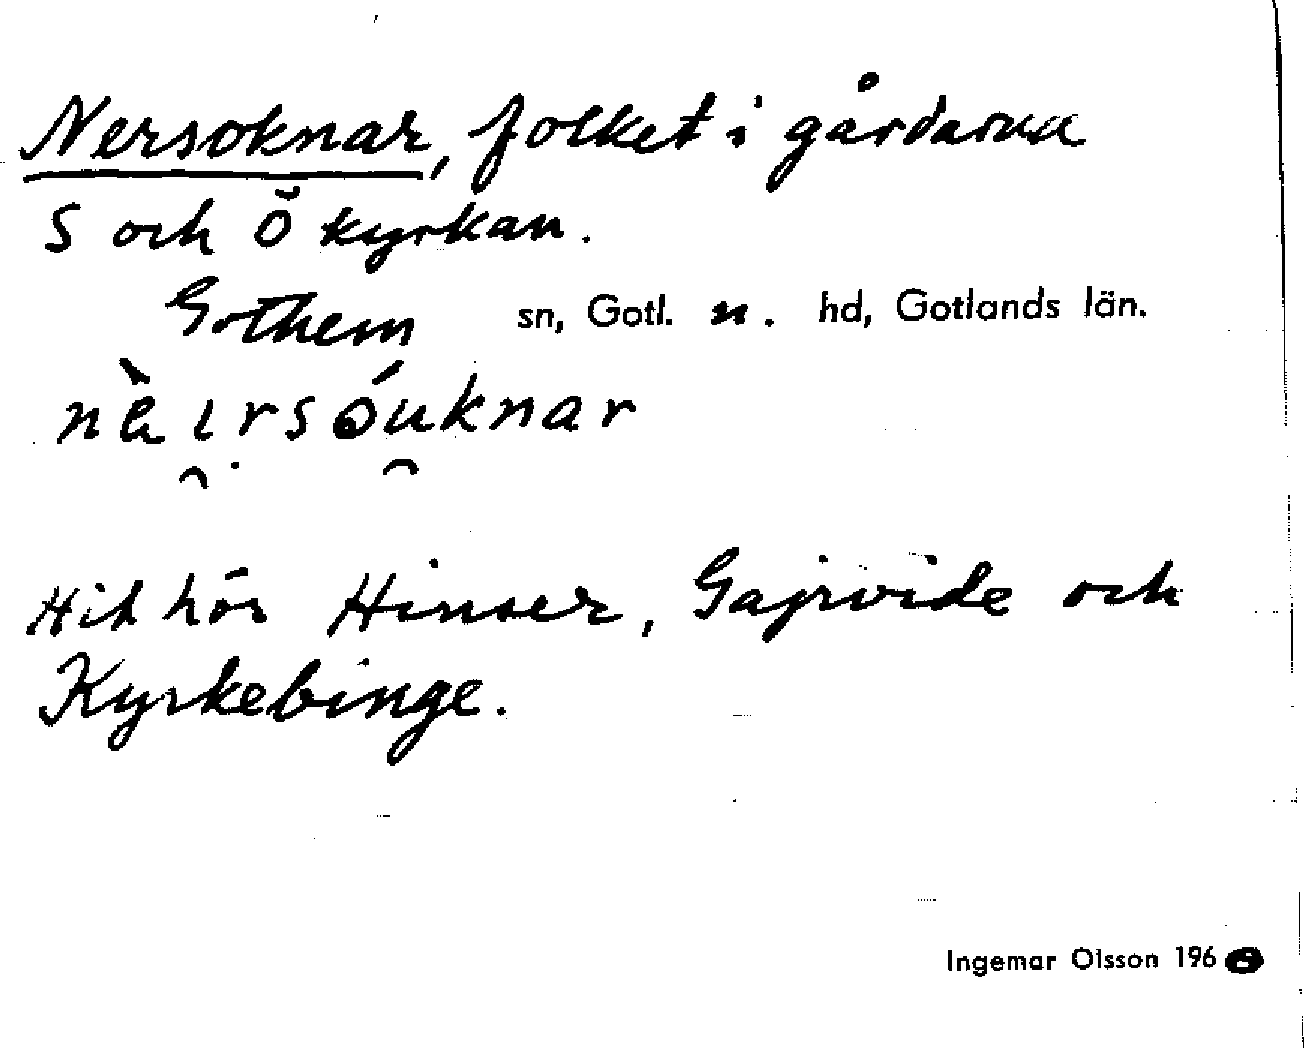 Nersoknar, folket i gårdarna
S och Ö kyrkan.
Gothem sn, Gotl. n. hd, Gotlands län.
nè̀ı̯rsóu̯knar
Hit hör Hinser, Gajrvide och
Kyrkebinge.
Ingemar Olsson 196